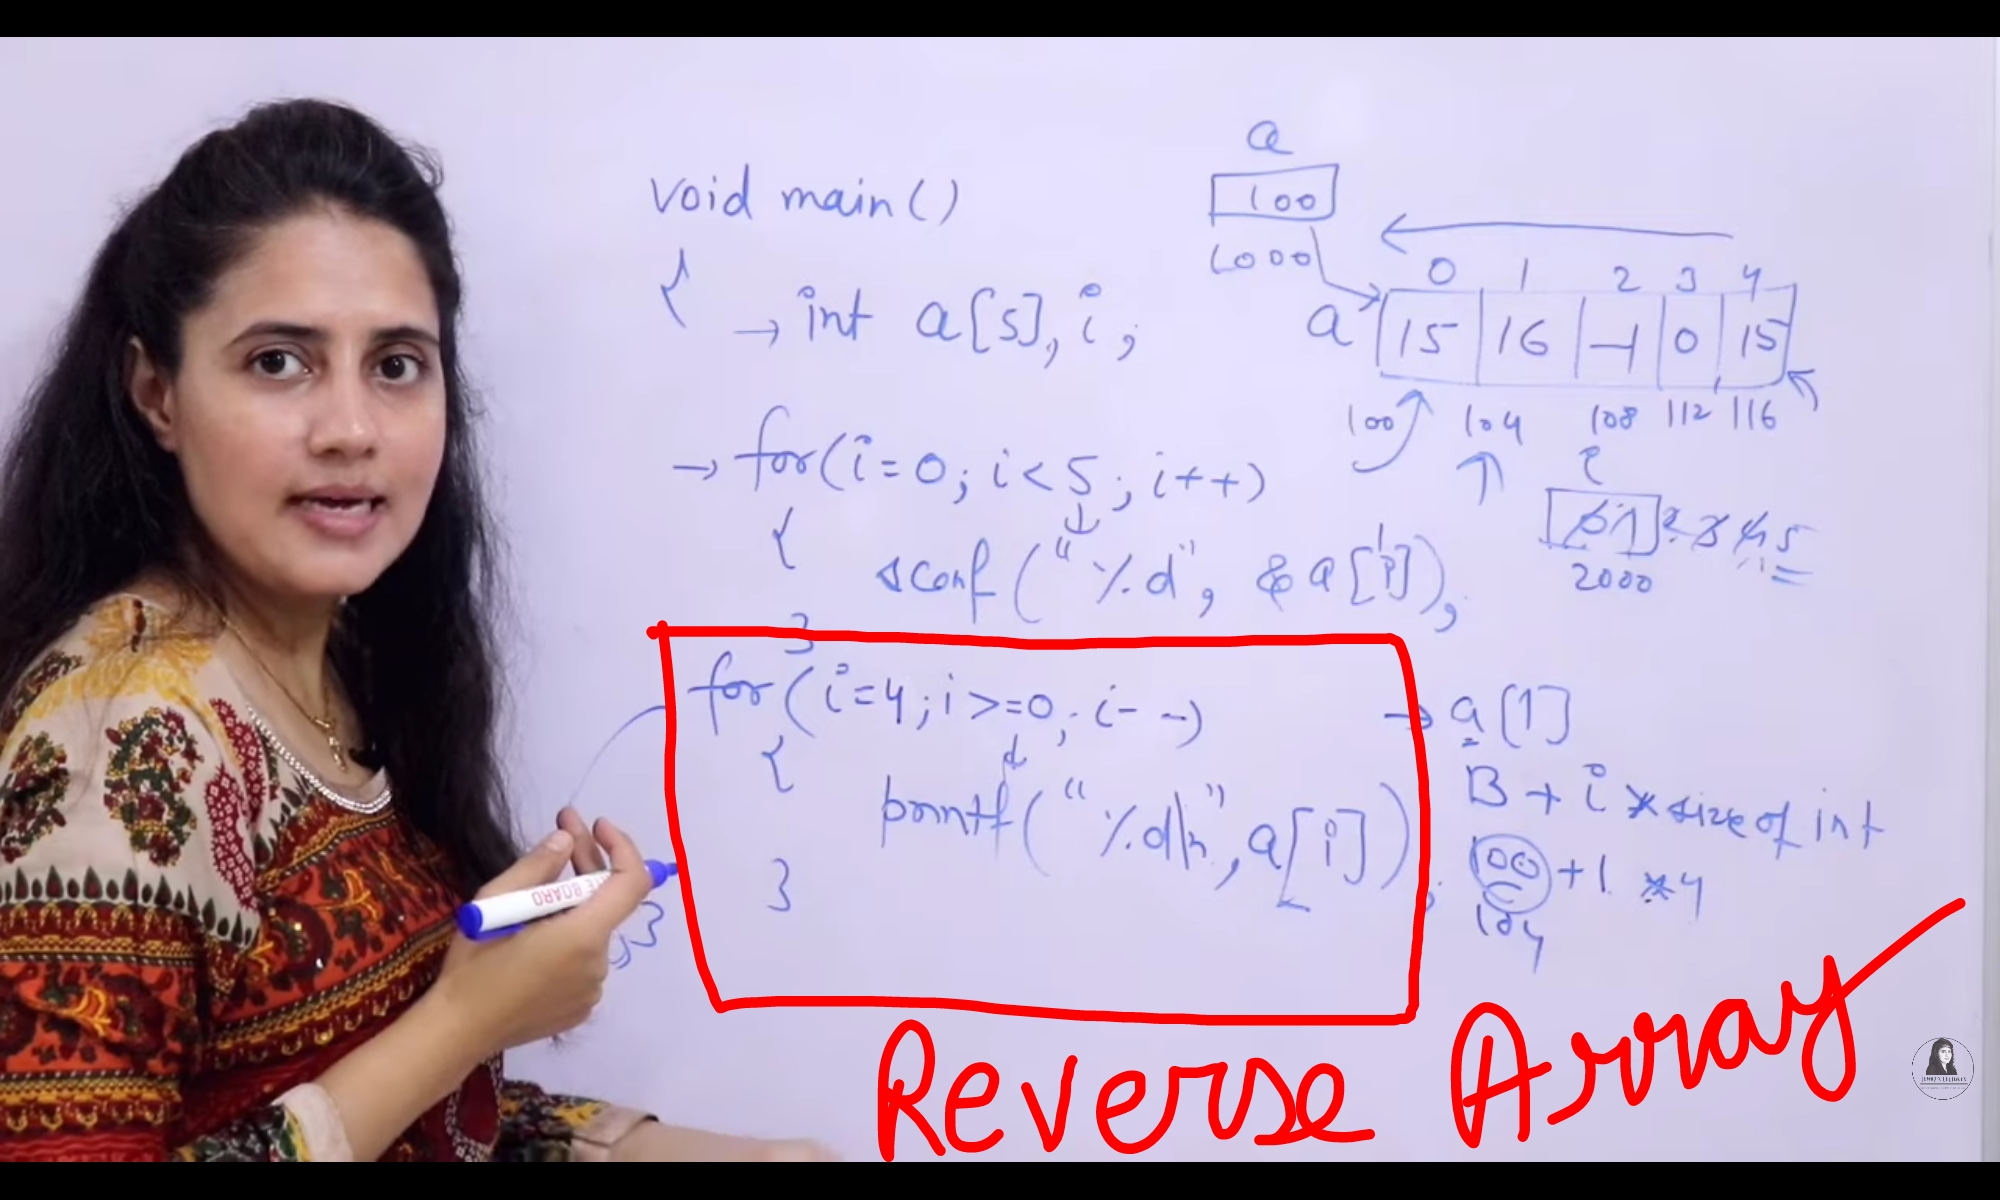 void main()
{
→ int a[5], i;
→ for(i=0; i<5; i++)
{
scanf("%d", &a[i]);
}
for(i=4; i>=0; i--)
{
printf("%d\n", a[i]);
}
}
a
100
1000
0 1 2 3 4
a 15 16 -1 0 15
100 104 108 112 116
i
0 1 2 3 4 5
2000
→ a[1]
B + i * size of int
100 + 1 * 4
104
Reverse Array